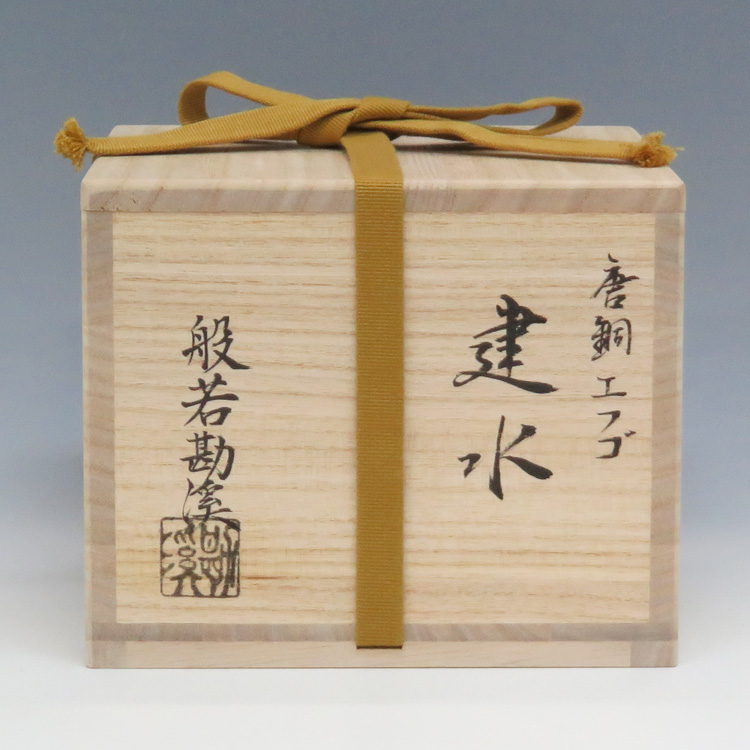 唐銅エフゴ
建水
般若勘溪
勘溪